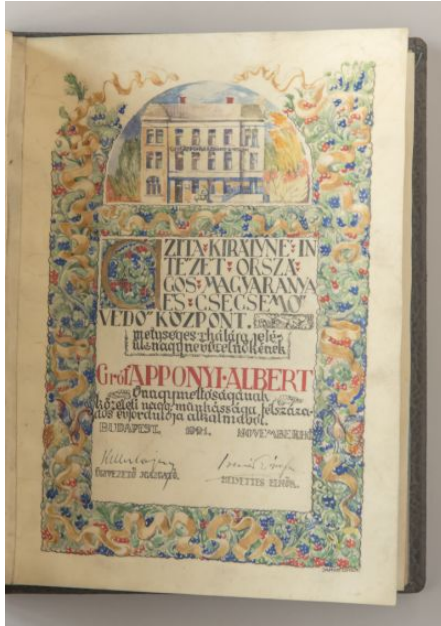 CZITA·KIRÁLYNÉ·IN
TÉZET·ORSZÁ
GOS·MAGYAR·ANYA
ÉS·CSECSEMŐ
VÉDŐ KÖZPONT.
mélységes hálája jelé-
ül nagynevű elnökének
Gróf APPONYI·ALBERT
Őnagyméltóságának
közéleti nagy munkássága félszáza-
dos évfordulója alkalmából.
BUDAPEST, 1921. NOVEMBERHÓ
ÜGYVEZETŐ IGAZGATÓ. HELYETTES ELNÖK.